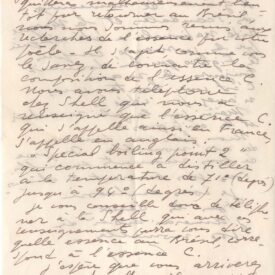 quittera malheureusement
tôt pour retourner au Brésil
nous
recherches de l'essence pour
poêle. Il s'agit comme
le savez de connaître la
composition de l'essence C.
Nous avons téléphoné
chez Shell qui nous a
renseigné que l'essence C.
qui s'appelle ainsi en France
s'appelle en anglais
"Special boiling point 2"
qui commence à distiller
à la température de 71° (degrés)
jusqu'à 96° (degrés)
je vous conseille donc de téléphoner
à la Shell qui avec ces
renseignements pourra vous dire
quelle essence au Brésil
à l'essence C.
J'espère que vous arriverez